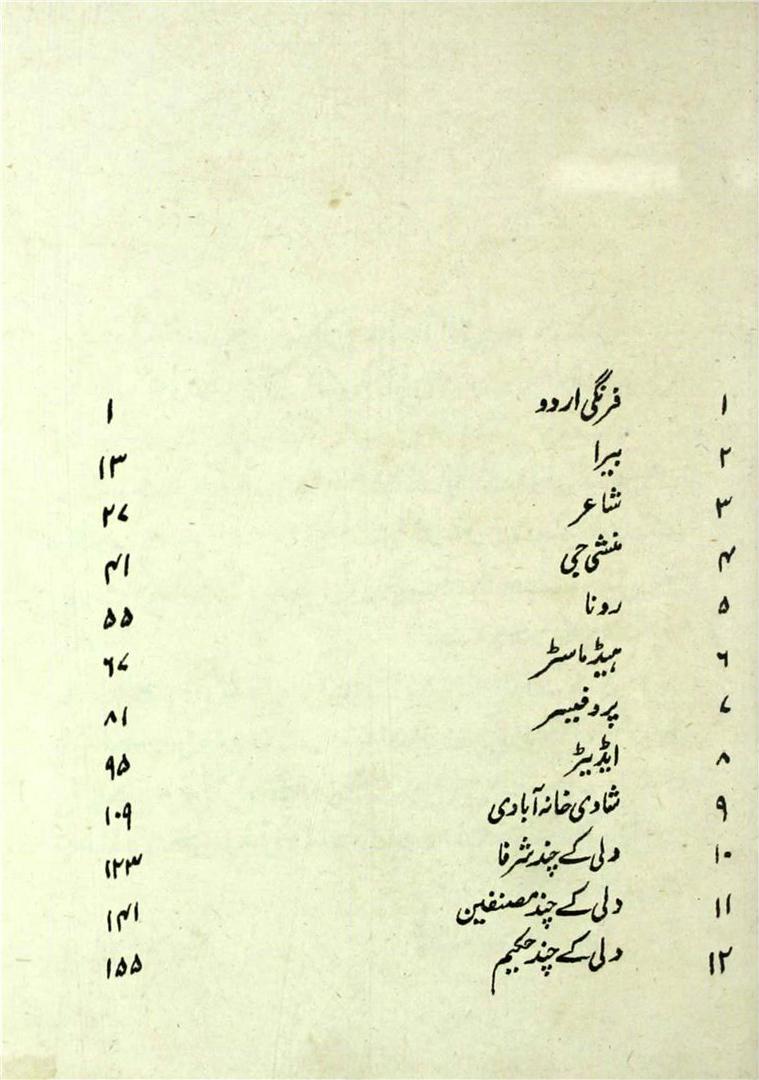 ۱ فرنگی اردو ۱
۲ بیرا ۱۳
۳ شاعر ۲۷
۴ منشی جی ۴۱
۵ رونا ۵۵
۶ ہیڈ ماسٹر ۶۷
۷ پروفیسر ۸۱
۸ ایڈیٹر ۹۵
۹ شادی خانہ آبادی ۱۰۹
۱۰ دلی کے چند شرفا ۱۲۳
۱۱ دلی کے چند مصنفین ۱۴۱
۱۲ دلی کے چند حکیم ۱۵۵